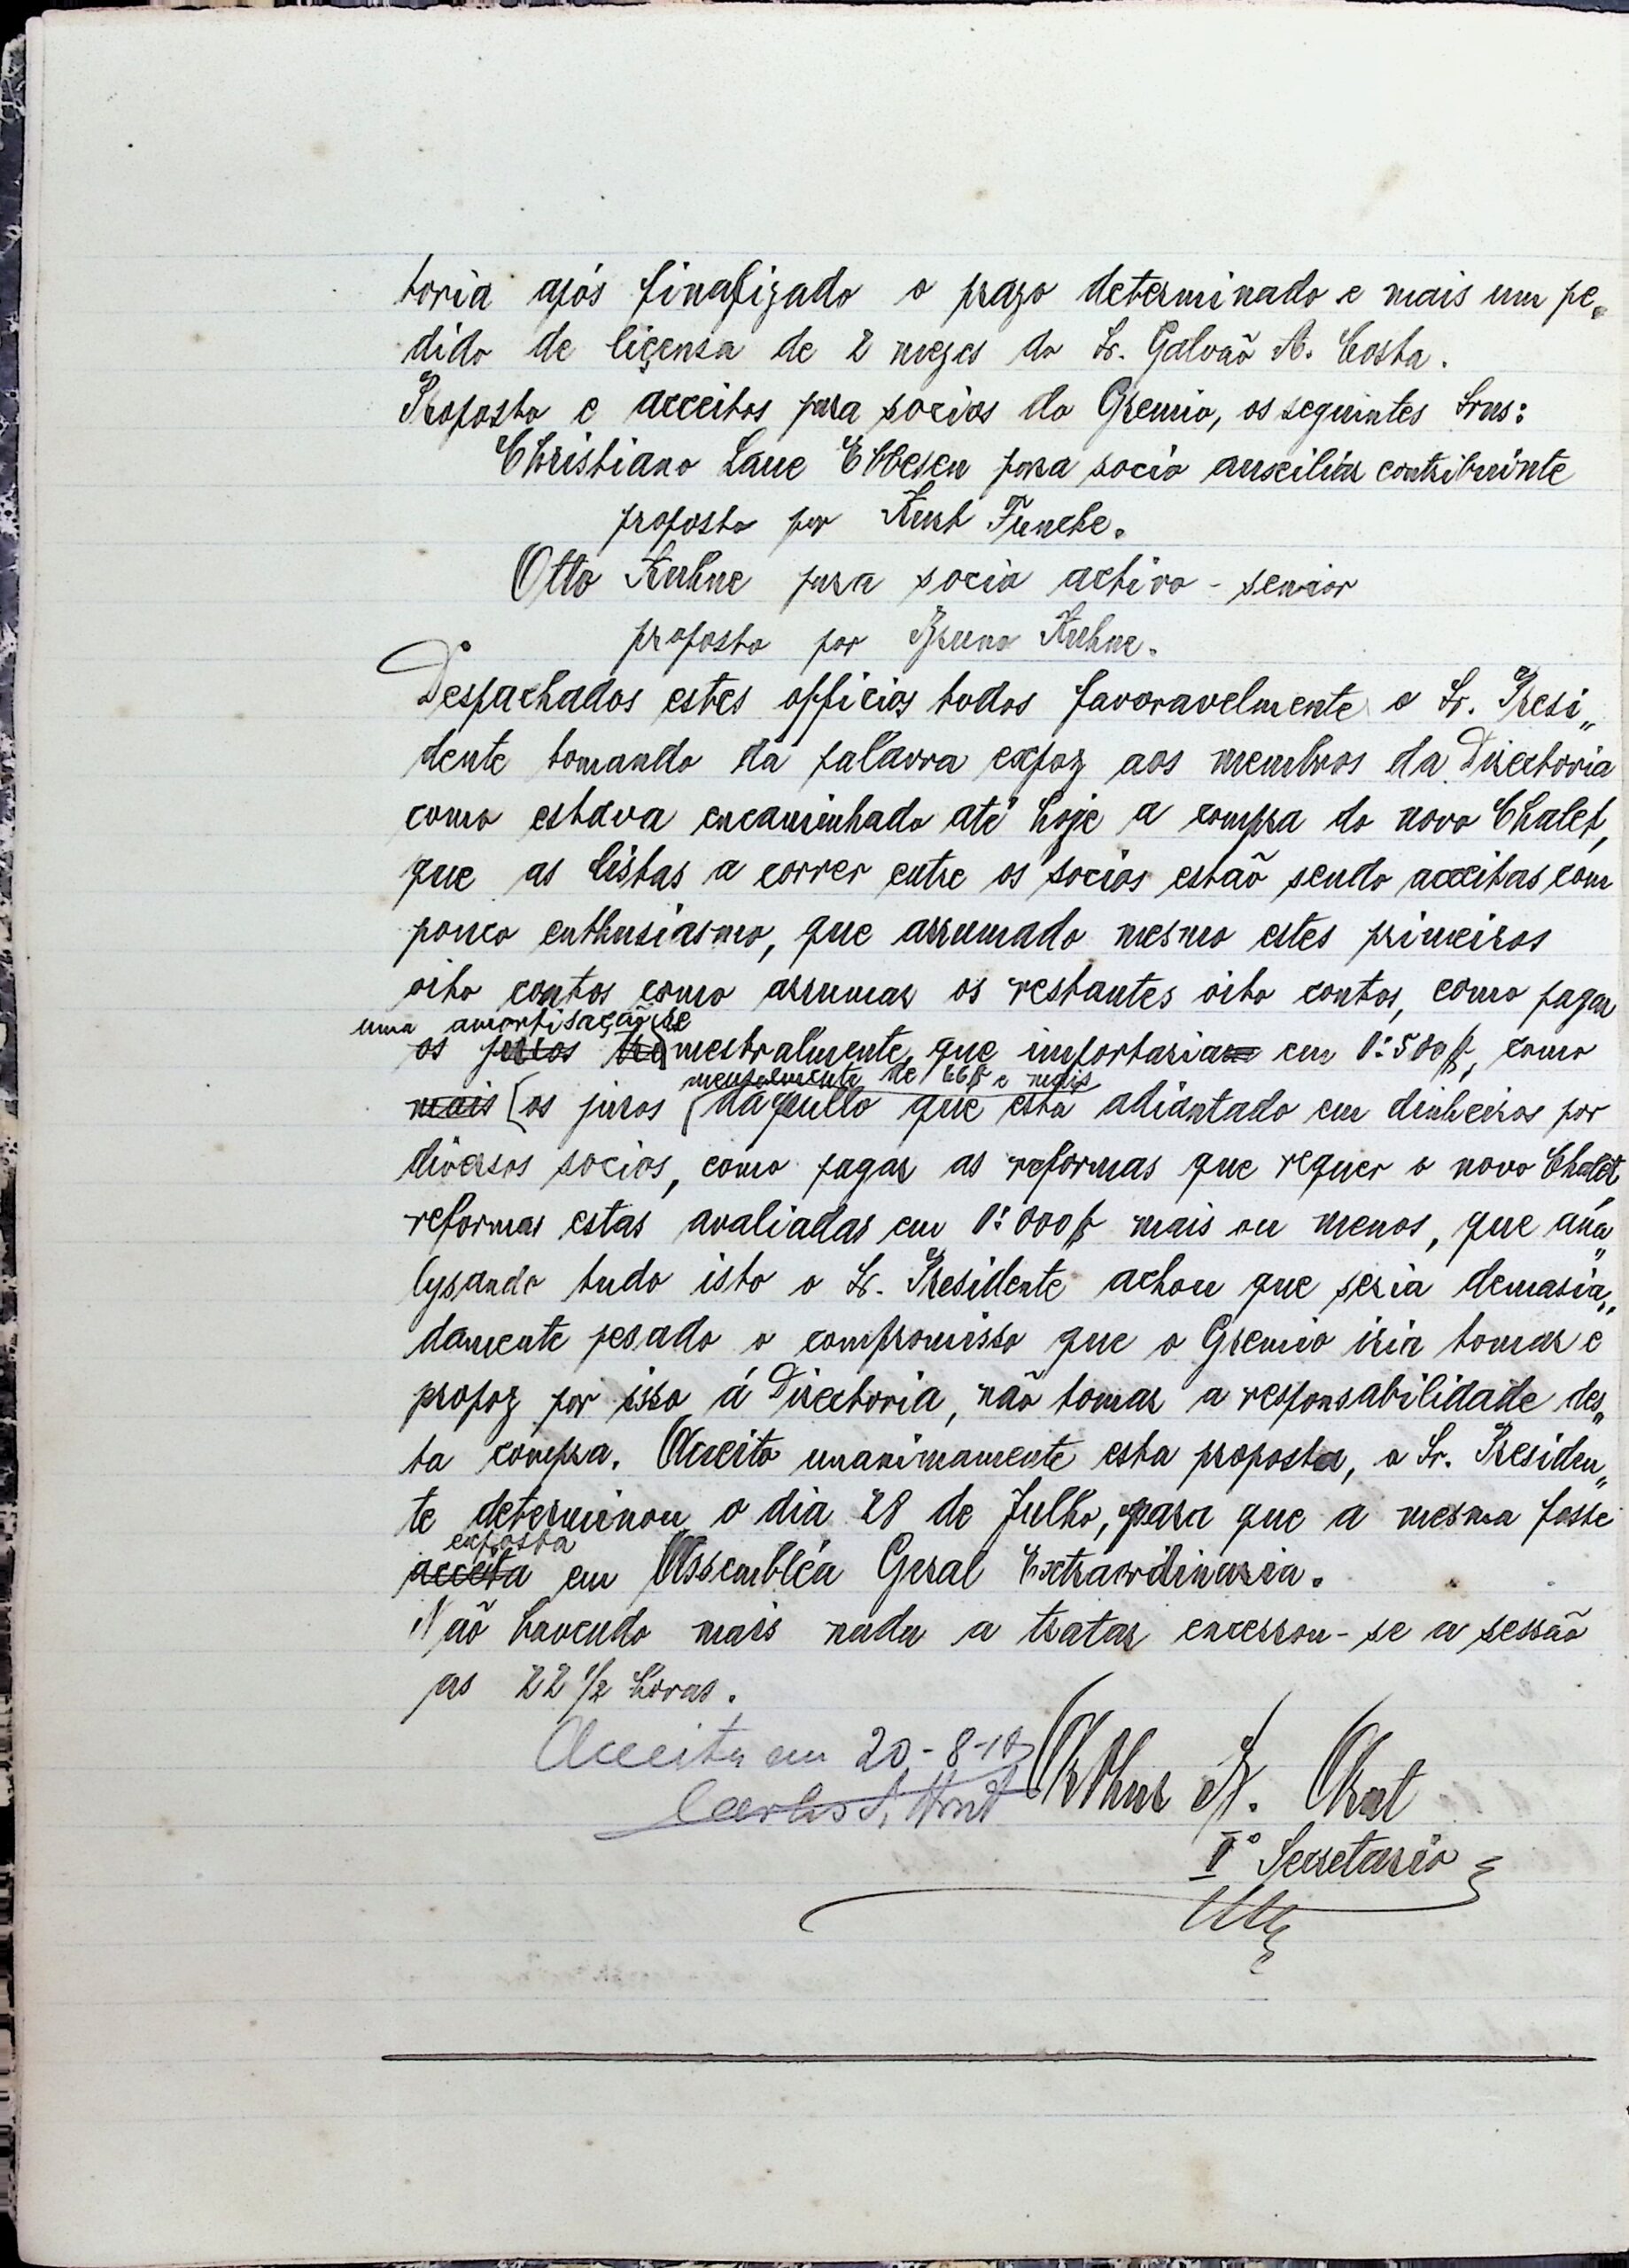 toria após finalizado o prazo determinado e mais um pe„
dido de liçensa de 2 mezes do Sr. Galvaõ A. Costa.
Proposto e acceitos para socios do Gremio, os seguintes Snrs:
Christiano Laue Ebbesen para socio auxiliar contribuinte
proposto por Kurt Funcke.
Otto Kuhne para socio activo - senior
proposto por Bruno Kuhne.
Despachados estes officios todos favoravelmente o Sr. Presi„
dente tomando da palavra expoz aos membros da Directoria
como estava encaminhado até hoje a compra do novo Chalet,
que as listas a correr entre os socios estaõ sendo acceitas com
pouco enthusiasmo, que arrumado mesmo estes primeiros
oito contos como arrumar os restantes oito contos, como pagar
uma amortisação se
os juros tri mestralmente, que importaria em 1:500$, como
mensalmente de 66$ e mais
mais [os juros daquillo que está adiantado em dinheiros por
diversos socios, como pagar as reformas que requer o novo Chalet,
reformas estas avaliadas em 1:000$ mais ou menos, que ana„
lysando tudo isto o Sr. Presidente achou que seria demasia„
damente pesado o compromisso que o Gremio iria tomar e
propoz por isso á Directoria, não tomar a responsabilidade des„
ta compra. Acceito unanimamente esta proposta, o Sr. Presiden„
te determinou o dia 28 de Julho, para que a mesma fosse
exposta
acceita em Assembléa Geral Extraordinaria.
Naõ havendo mais nada a tratar encerrou-se a sessão
as 22 1/2 horas.
Acceita em 20-8-18
Arthur A.
Iº Secretario